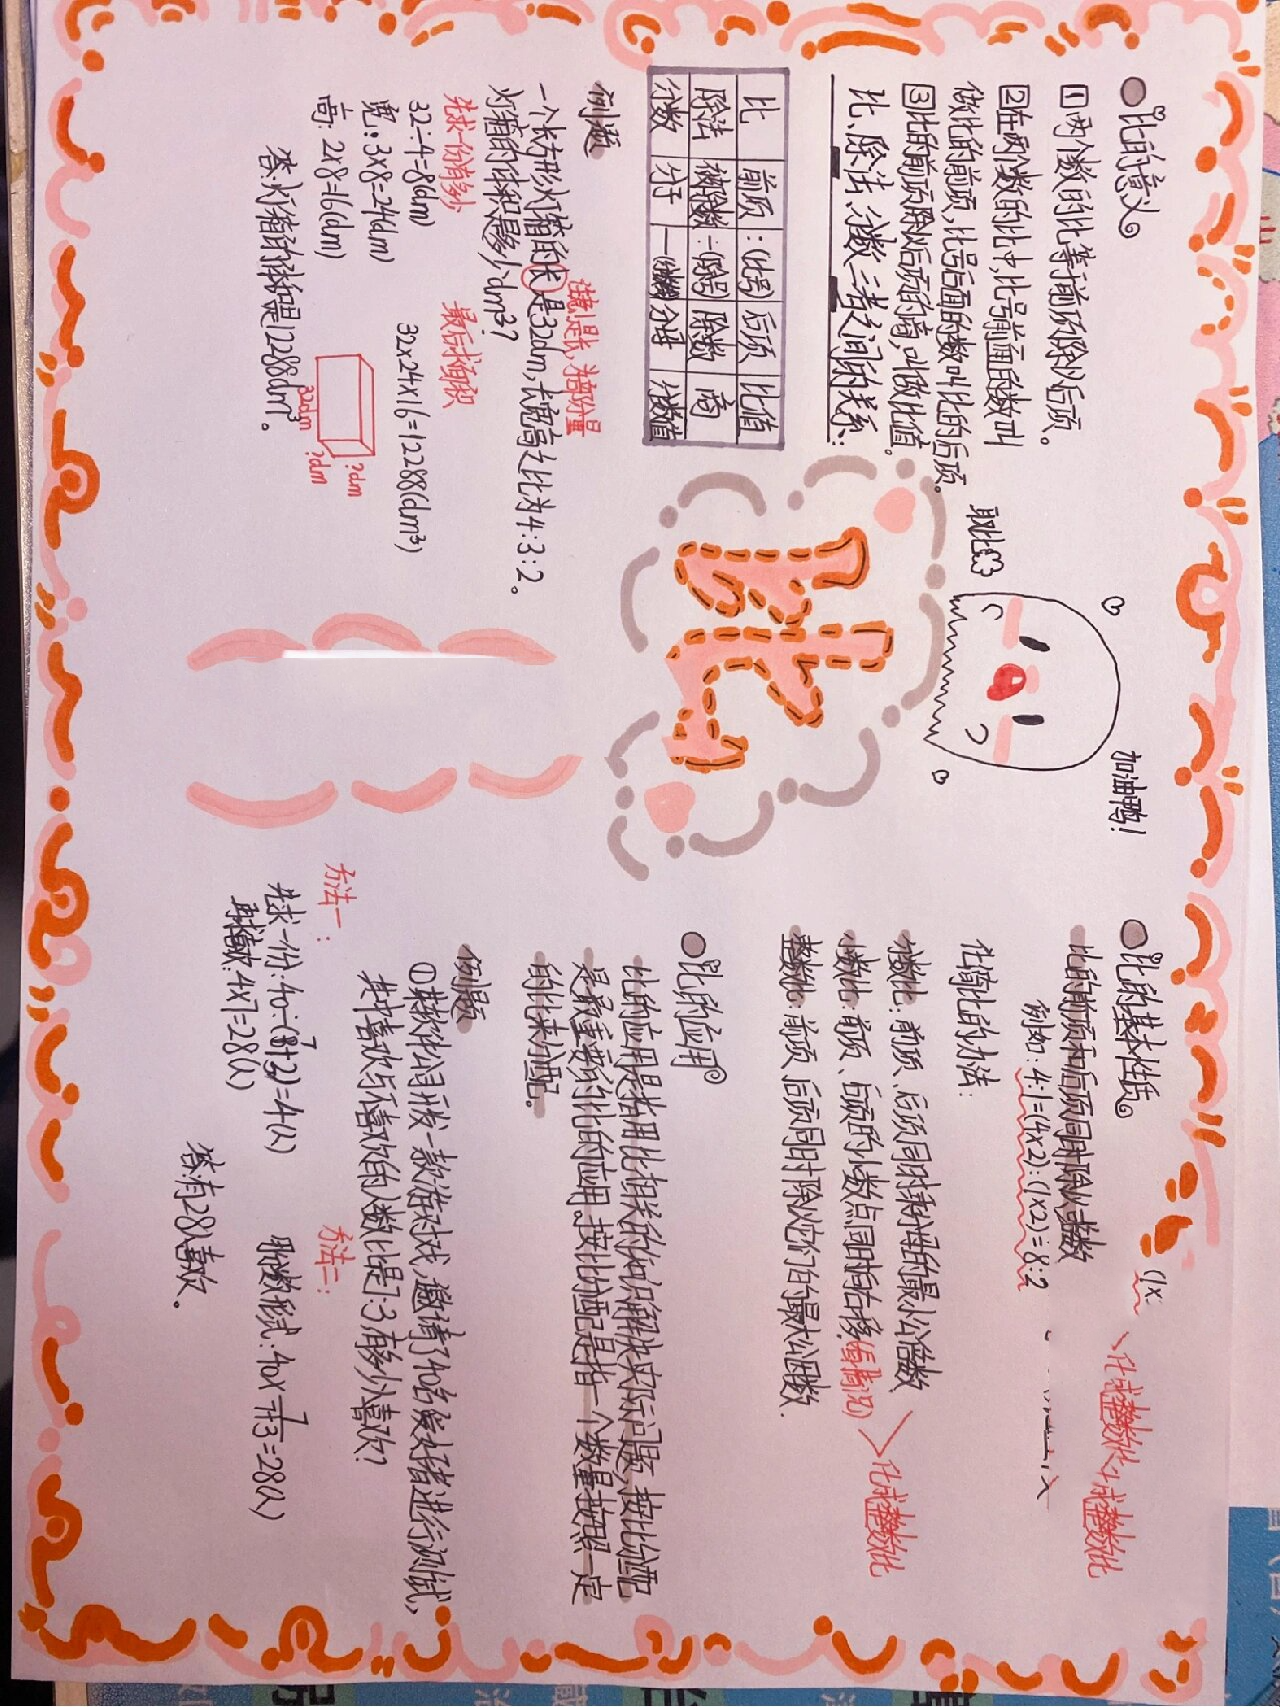 比的意义
1 两个数的比等于前项除以后项。
2 在两个数的比中,比号前面的数叫
做比的前项,比号后面的数叫比的后项。
3 比的前项除以后项的商,叫做比值。
比、除法、分数三者之间的关系:
比 前项 :(比号) 后项 比值
除法 被除数 ÷(除号) 除数 商
分数 分子 —(分数线) 分母 分数值
例题
注意是长,为部分量
一个长方形灯箱的长是32dm,长宽高之比为4:3:2。
灯箱的体积是多少dm³?
先求一份有多少
最后求体积
32÷4=8(dm)
宽:3×8=24(dm)
高:2×8=16(dm)
32×24×16=12288(dm³)
32dm
?dm
?dm
答:灯箱的体积是12288dm³。
加油鸭!
比的基本性质
比的前项和后项同时除以一整数
例如:4:1=(4×2):(1×2)=8:2
(1×
化成整数比
化成整数比
化简比的方法:
分数比:前项、后项同时乘分母的最小公倍数
小数比:前项、后项的小数点同时向右移(看情况)
化成整数比
整数比:前项、后项同时除以它们的最大公因数.
比的应用
比的应用是指用比相关的知识解决实际问题,按比分配
是最重要的比的应用。按比分配是指一个数量按照一定
的比来分配。
例题
①某软件公司开发一款游戏,邀请了40名爱好者进行测试,
其中喜欢与不喜欢的人数比是7:3,有多少人喜欢?
方法一:
先求一份:40÷(7+3)=4(人)
再求喜欢:4×7=28(人)
方法二:
用分数形式:40×7/7+3=28(人)
答:有28人喜欢。